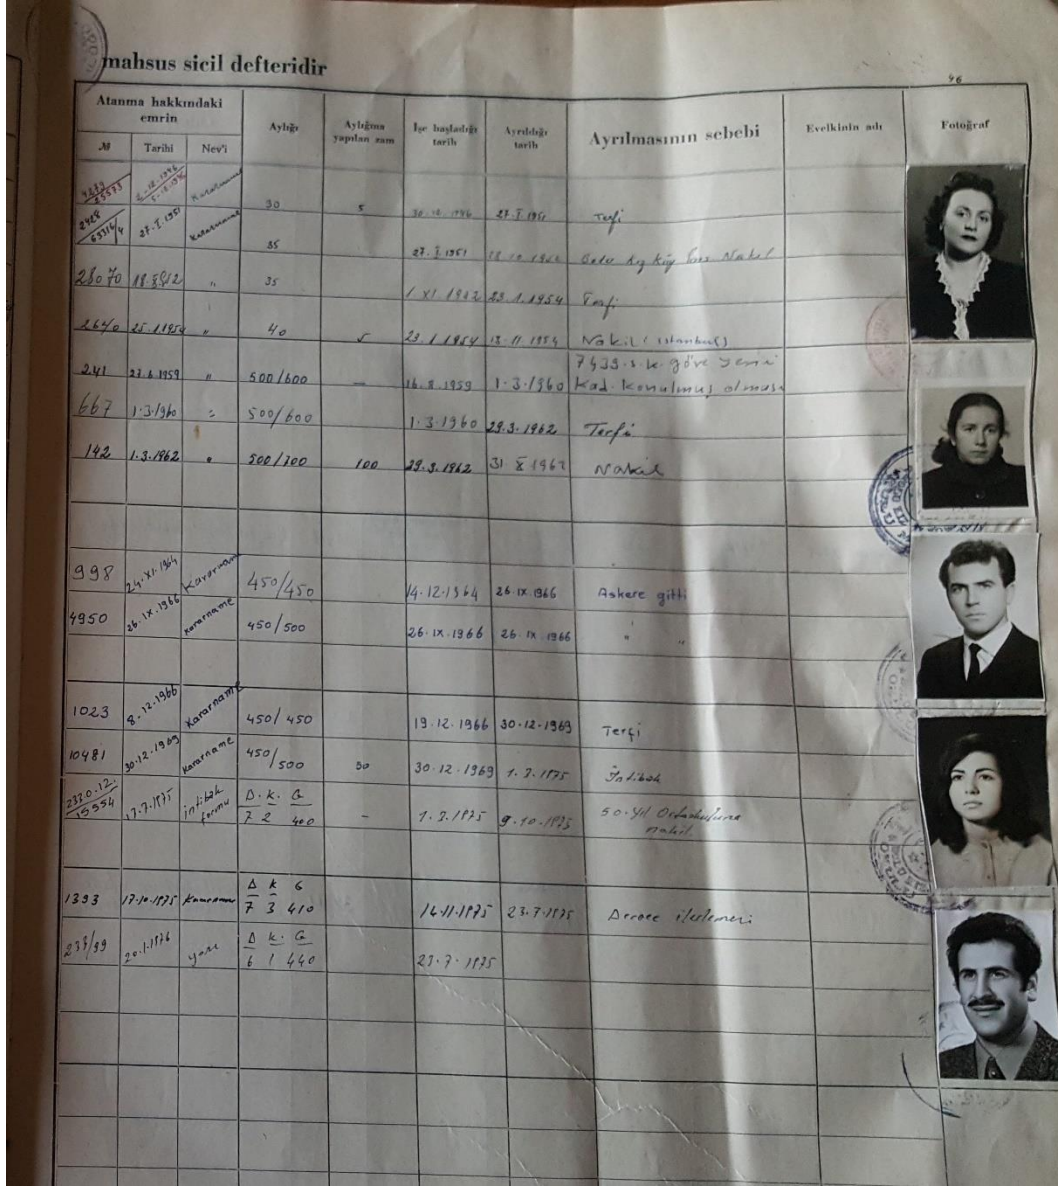 mahsus sicil defteridir
46
Atanma hakkındaki emrin
Aylığı
Aylığına yapılan zam
İşe başladığı tarih
Ayrıldığı tarih
Ayrılmasının sebebi
Evelkinin adı
Fotoğraf
№ Tarihi Nev'i
30 5 30.12.1946 27.I.1951 Terfi
27.I.1951 Kararname 35 27.I.1951 Nakil
28070 35 1.XI.1952 23.1.1954 Terfi
2640 25.1.1954 " 40 5 23.1.1954 13.11.1954 Nakil (Istanbul)
7439 s.k. göre yeni
241 23.6.1959 " 500/600 — 16.8.1959 1.3.1960 Kad. konulmuş olması
667 1.3.1960 " 500/600 1.3.1960 29.3.1962 Terfi
142 1.3.1962 " 500/700 100 29.3.1962 31.X.1962 Nakil
998 24.XI.1964 Kararname 450/450 14.12.1964 26.IX.1966 Askere gitti
4950 26.IX.1966 Kararname 450/500 26.IX.1966 26.IX.1966 " "
1023 8.12.1966 Kararname 450/450 19.12.1966 30.12.1969 Terfi
10481 30.12.1969 Kararname 450/500 50 30.12.1969 1.7.1975 İntibak
D. K. G
15954 17.7.1975 intibak formu 7 2 400 — 1.7.1975 9.10.1975 50. Yıl Ortaokuluna nakil
D K G
1393 17.10.1975 Kararname 7 3 410 14.11.1975 23.7.1975 Derece ilerlemesi
D K. G
20.1.1976 yazı 6 1 440 23.7.1975